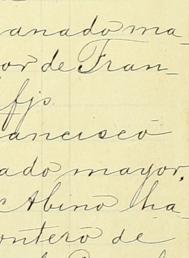 anado ma-
or de Fran-
fjs
ancisco
ado mayor.
Abino ha
ontero de